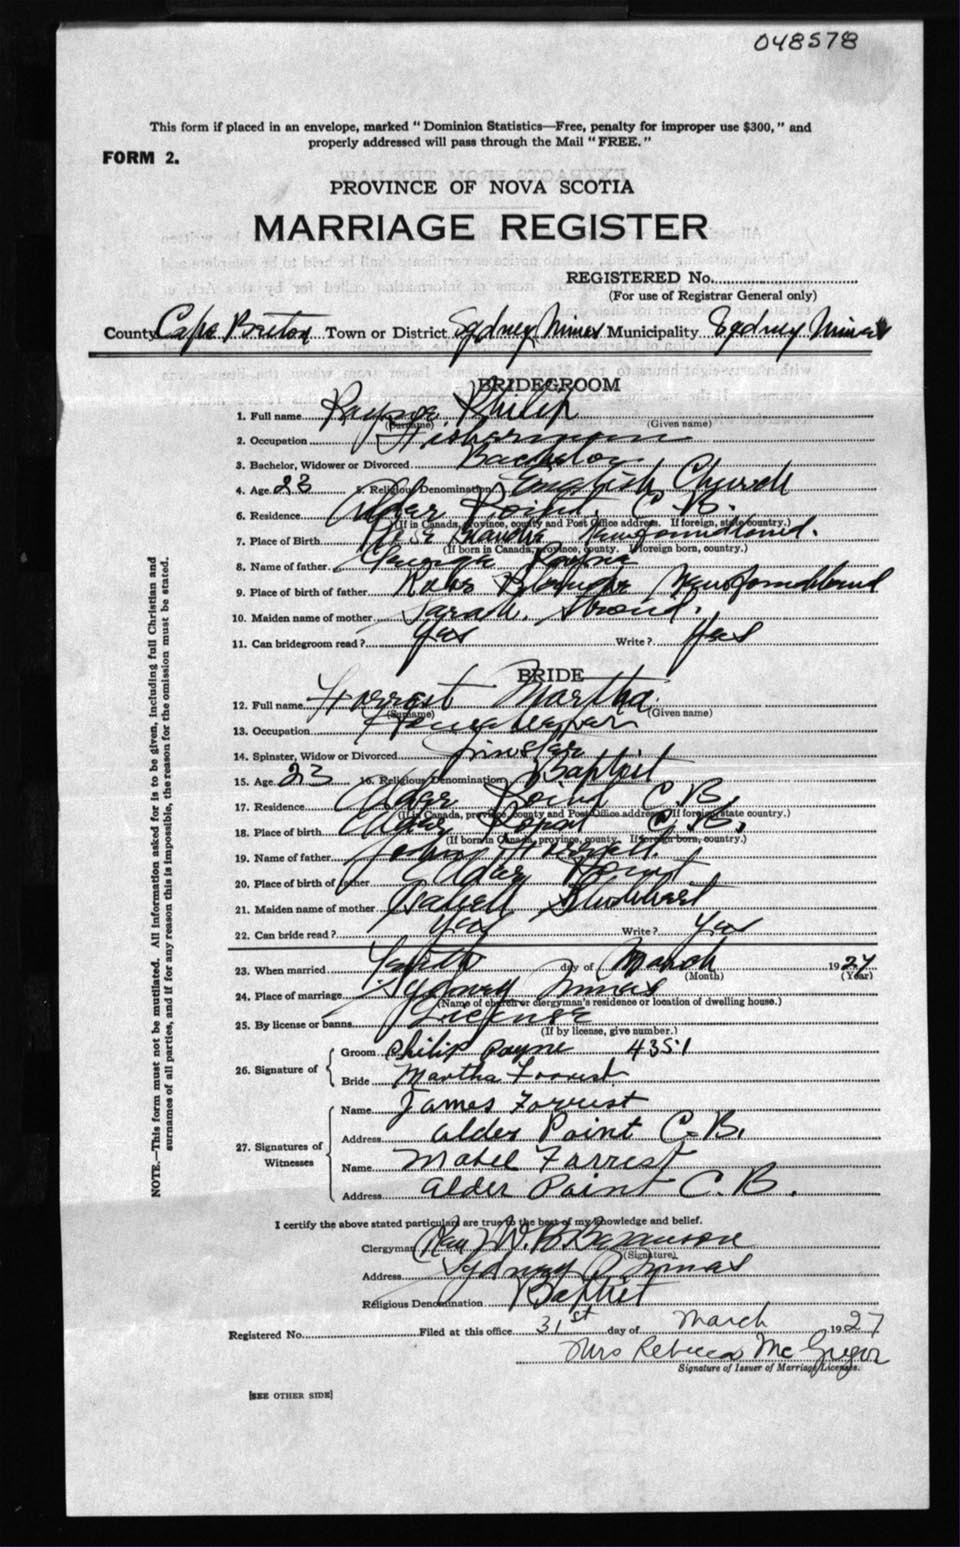 048578
This form if placed in an envelope, marked "Dominion Statistics—Free, penalty for improper use $300," and
properly addressed will pass through the Mail "FREE."
FORM 2.
PROVINCE OF NOVA SCOTIA
MARRIAGE REGISTER
REGISTERED No.
(For use of Registrar General only)
County Cape Breton Town or District Sydney Mines Municipality Sydney Mines
BRIDEGROOM
1. Full name Payne Philip
(Surname) (Given name)
2. Occupation Fisherman
3. Bachelor, Widower or Divorced Bachelor
4. Age 23 5. Religious Denomination English Church
6. Residence Alder Point C. B.
(If in Canada, province, county and Post Office address. If foreign, state country.)
7. Place of Birth Rose Blanche Newfoundland.
(If born in Canada, province, county. If foreign born, country.)
8. Name of father George Payne
9. Place of birth of father Rose Blanche Newfoundland
10. Maiden name of mother Sarah Stroud.
11. Can bridegroom read? Yes Write? Yes
BRIDE
12. Full name Forrest Martha
(Surname) (Given name)
13. Occupation Housekeeper
14. Spinster, Widow or Divorced Spinster
15. Age 23 16. Religious Denomination Baptist
17. Residence Alder Point C. B.
(If in Canada, province, county and Post Office address. If foreign state country.)
18. Place of birth Alder Point C. B.
(If born in Canada, province, county. If foreign born, country.)
19. Name of father John Forrest.
20. Place of birth of father Alder Point
21. Maiden name of mother
22. Can bride read? Yes Write? Yes
23. When married day of March 1927
(Month) (Year)
24. Place of marriage Sydney Mines
(Name of church or clergyman's residence or location of dwelling house.)
25. By license or banns License
(If by license, give number.)
26. Signature of
Groom Philip Payne 4351
Bride Martha Forrest
27. Signatures of Witnesses
Name James Forrest
Address Alder Point C. B.
Name Mabel Farrest
Address Alder Point C. B.
I certify the above stated particulars are true to the best of my knowledge and belief.
Clergyman Rev W. B. Bezanson
(Signature)
Address Sydney Mines
Religious Denomination Baptist
Registered No. Filed at this office 31st day of March 1927
Mrs Rebecca McGregor
Signature of Issuer of Marriage Licenses.
[SEE OTHER SIDE]
NOTE.—This form must not be mutilated. All information asked for is to be given, including full Christian and
surnames of all parties, and if for any reason this is impossible, the reason for the omission must be stated.